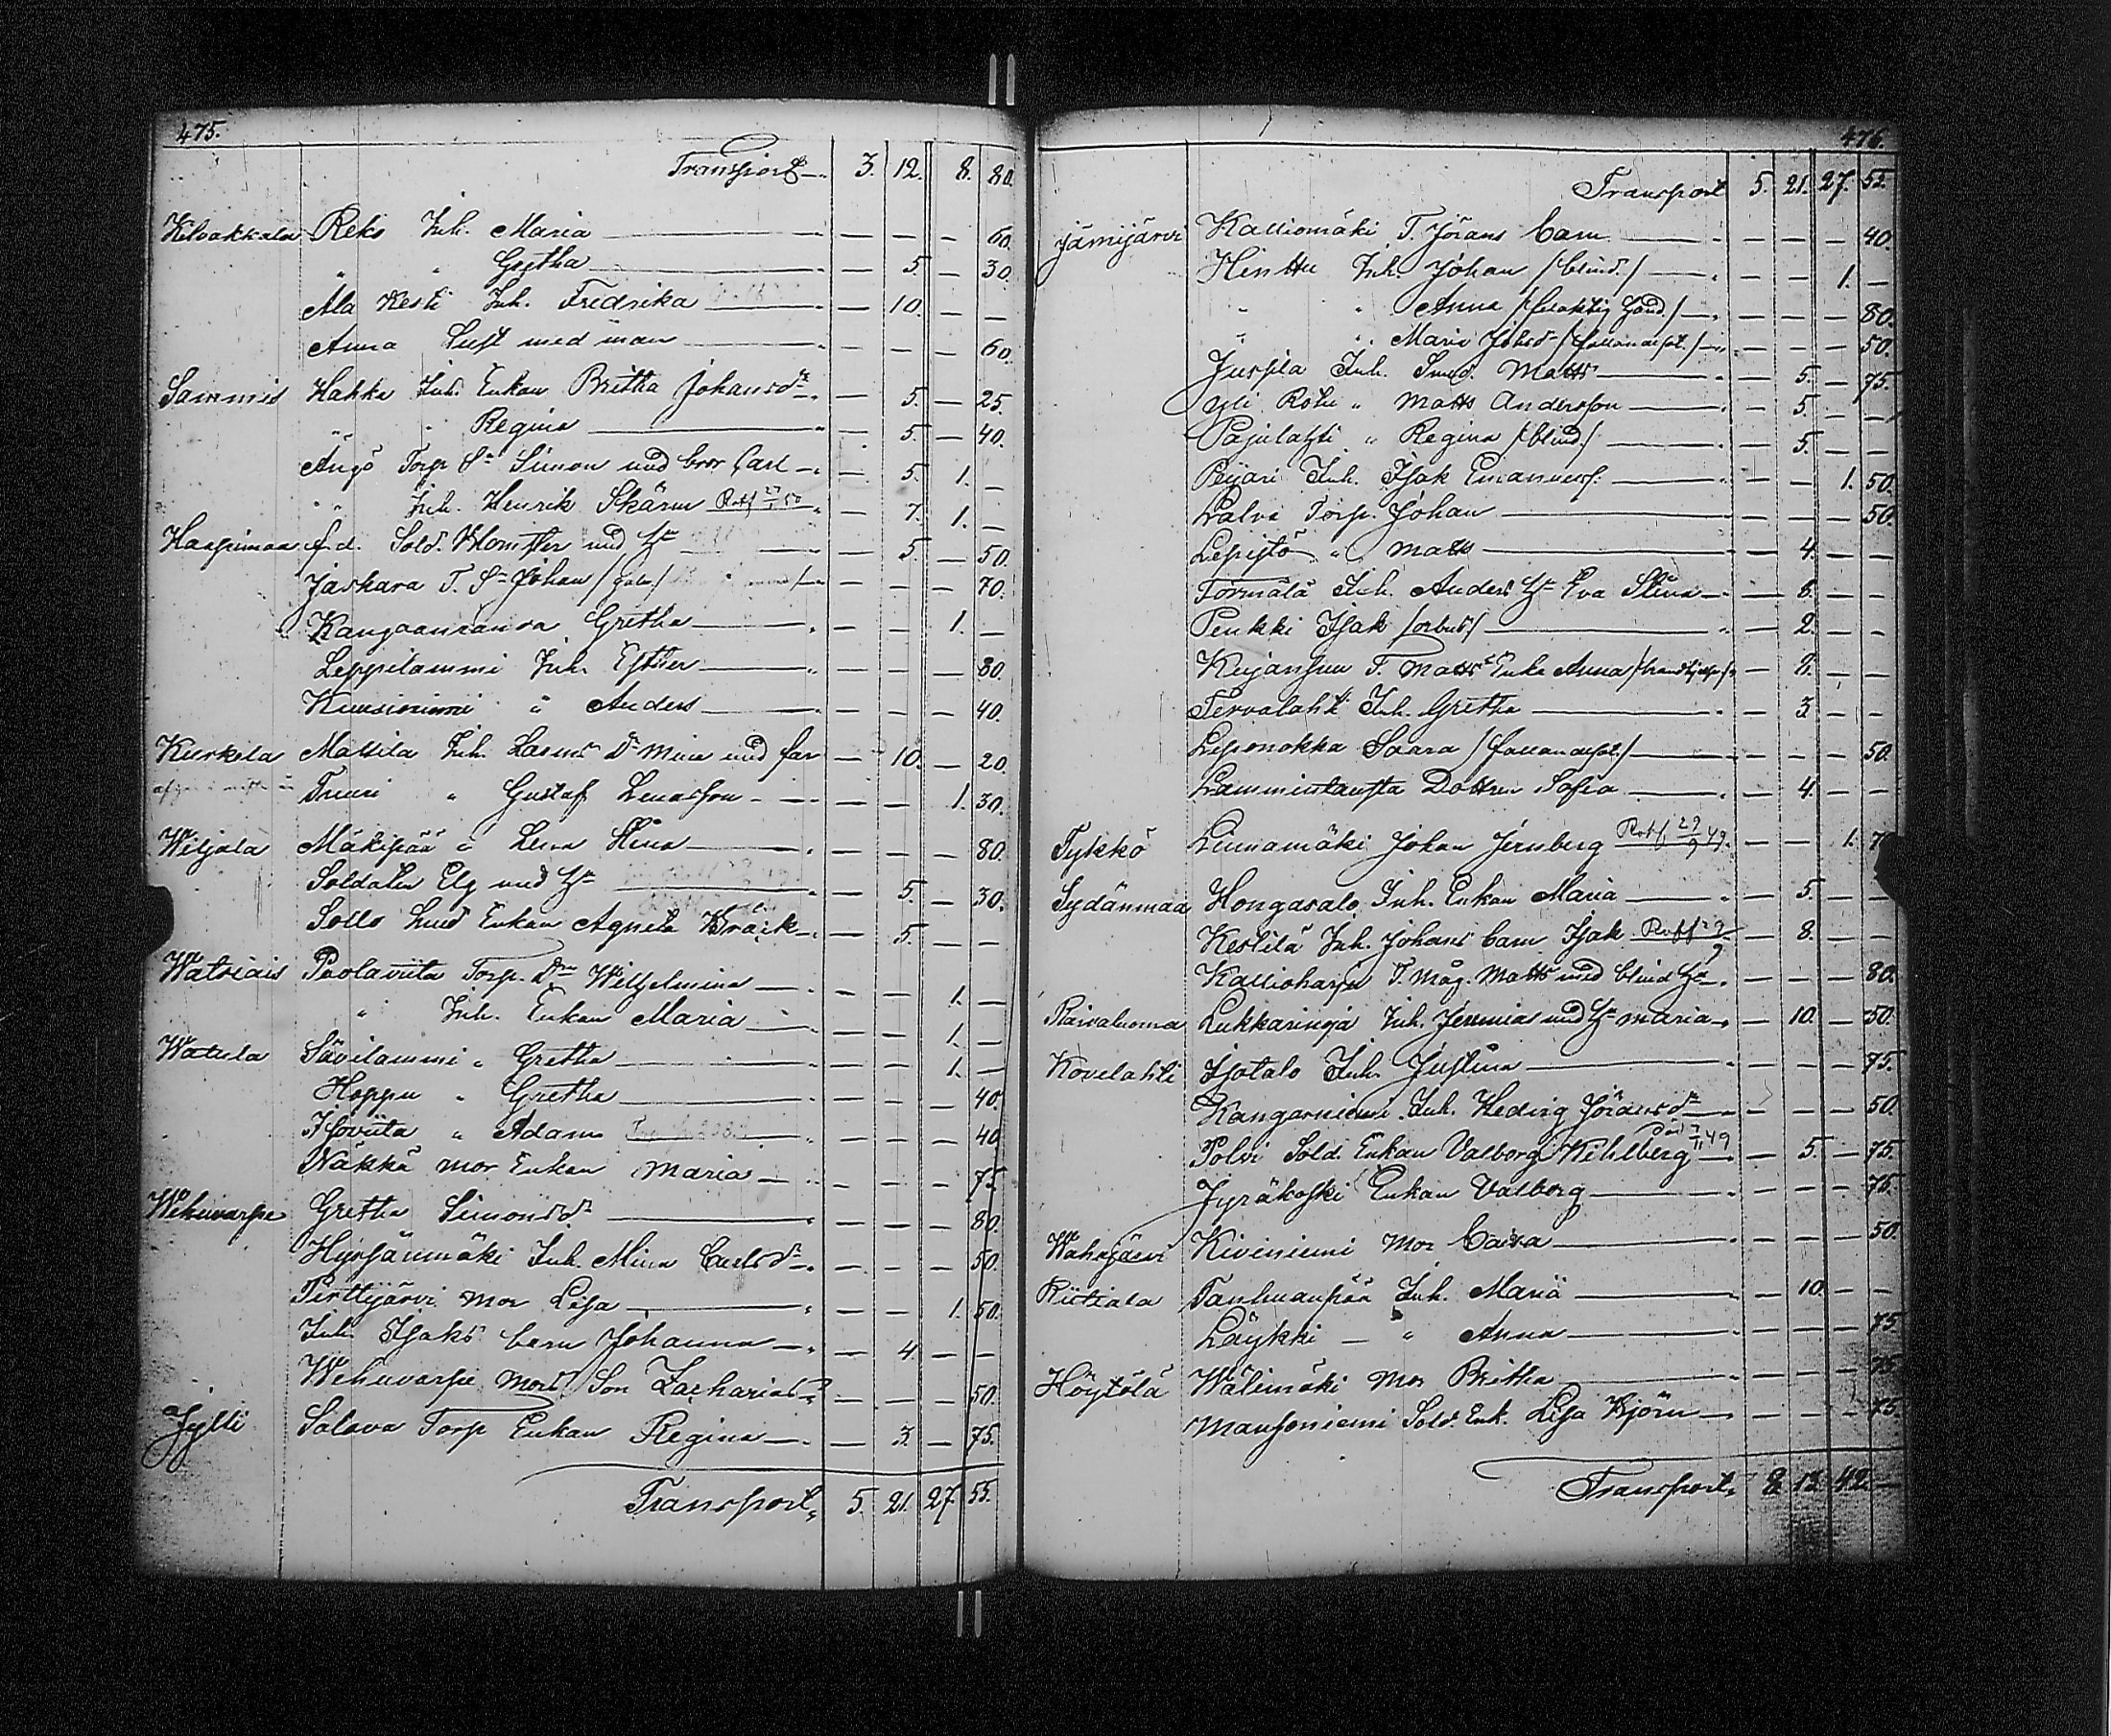 475.
Transport 3. 12. 8. 80.
Kilvakkala Reko Inh. Maria — — — 60.
" " Gretha — 5. — 30.
Ala Kesti Inh. Fredrika — 10. — —
Anna Lust med man — — — 60.
Sammis Hakka Inh. Enkan Britha Johansdr — 5. — 25.
" " Regina — 5. — 40.
Äijö Torp Sn Simon med bror Carl — 5. 1. —
" Inh. Henrik Skärm — 7. 1. —
Haapimaa f.d. Sold. med Hu — 5. — 50.
Jaskara T. Sn Johan — — — 70.
Kangaanranta Gretha — — 1. —
Leppilammi Inh. Esther — — — 80.
Kuusiniemi " Anders — — — 40.
Kurkela Mattila Inh. Dr Mina med far — 10. — 20.
" Gustaf — — 1. 30.
Wiljala Mäkipää " Lena Stina — — — 80.
Soldaten Elg med Hu — 5. — 30.
Sold Lund Enkan Agneta Bräck — 5. — —
Watsiais Puolaviita Torp. Drn Wilhelmina — — 1. —
" Inh. Enkan Maria — — 1. —
Watula Savilammi " Gretha — — 1. —
Hoppu " Gretha — — — 40.
Isoviita " Adam — — — 40
Näkkä mor Enkan Maria — — — 75
Wehuvarpe Gretha Simonsdr — — — 80.
Hyypänmäki Inh. Mina Carlsdr — — — 50.
Perttijärvi mor Lisa — — 1. 50.
Inh. Isaks barn Johanna — 4. — —
Wehuvarpe mors Son Zacharias — — — 50.
Jylli Salava Torp Enkan Regina — 3. — 75.
Transport 5. 21. 27. 55.
476.
Transport 5. 21. 27. 55.
Jämijärvi Kalliomäki T. Jörans barn — — — 40.
Hinttu Inh. Johan /blind./ — — 1. —
" " Anna — — — 80.
" " Maria /fallandesot./ — — — 50.
Juspila Inh. Smed. Matts — 5. — 75.
Yli Rohu " Matts Andersson — 5. — —
Pajulahti " Regina /blind/ — 5. — —
Pejari Inh. Isak Emanuelss. — — 1. 50.
Lalva Torp. Johan — — — 50.
Lepistö " Matts — 4. — —
Törmälä Inh. Anders Hu Eva Stina — 8. — —
Penkki Isak — 2. — —
Kujansuu T. Matts Enka Anna — 8. — —
Tervalahti Inh. Gretha — 3 — —
Leponokka Saara /fallandesot./ — — — 50.
Lammintausta Dottren Sofia — 4. — —
Tykkö Linnamäki Johan Jernberg 29/9 49. — — 1.
Sydänmaa Hongasalo Inh. Enkan Maria — 5. — —
Kestilä Inh. Johans barn Isak — 8. — —
Kallioharju T. Måg. Matts med blind Hu — — — 80.
Raivaluoma Lukkarinoja Inh. Jeremias med Hu Maria — 10. — 50.
Kovelahti Isotalo Inh. Justina — — — 75.
Kangasniemi Inh. Hedvig Jöransdr — — — 50.
Polvi Sold. Enkan Valborg Wihlberg — 5. — 75.
Jyräkoski Enkan Valborg — — — 75.
Wahojärvi Kiviniemi Mor Caisa — — — 50.
Riitiala Taulunanpää Inh. Maria — 10. — —
Läykki — " Anna — — — 75.
Höytölä Wälimäki Mor Britha — — — 75.
Mansoniemi Sold. Enk. Lisa Björn — — — 75.
Transport 8. 13. 42. —